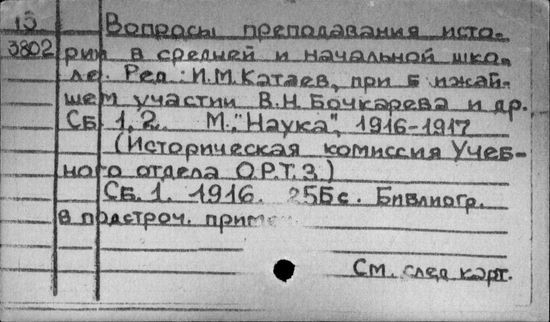 15 Вопросы преподавания исто-
3802 рии в средней и начальной шко-
ле. Ред: И.М.Катаев, при ближай-
шем участии В.Н.Бочкарева и др.
Сб 1,2. М., "Наука", 1916-1917
(Историческая комиссия Учеб-
ного отдела О.Р.Т.З.)
Сб. 1. 1916. 256с. Библиогр.
в подстроч. приме
См. след карт.